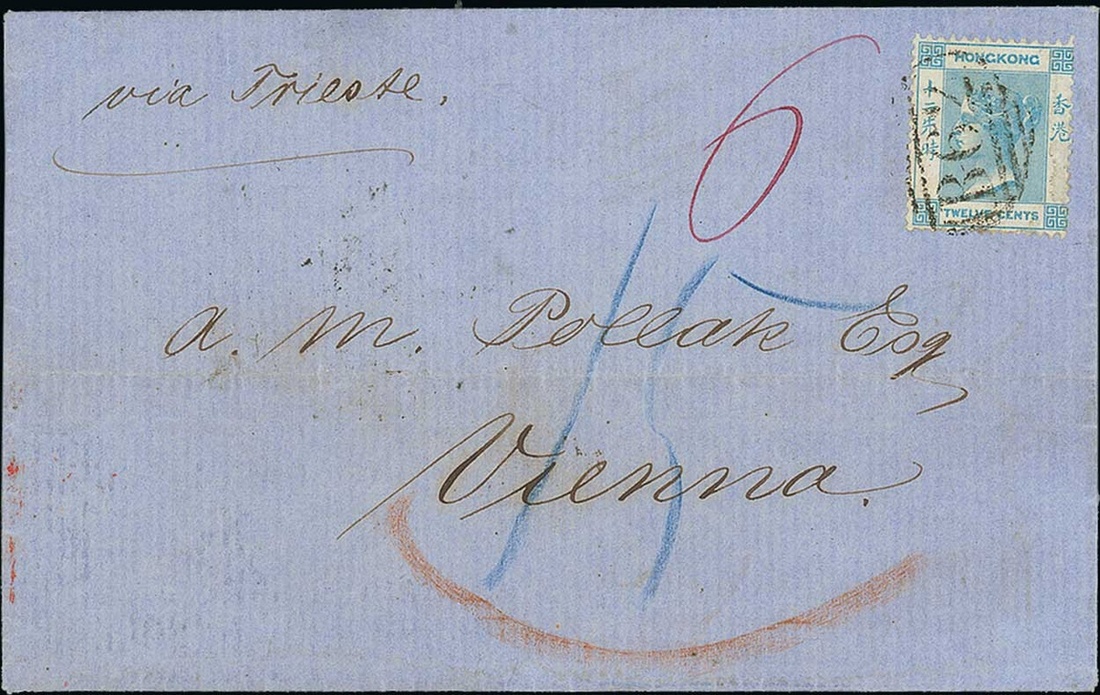 via Trieste.
6
HONGKONG
十二先時
香港
B62
TWELVE CENTS
15
a. m. Pollak Esq
Vienna.